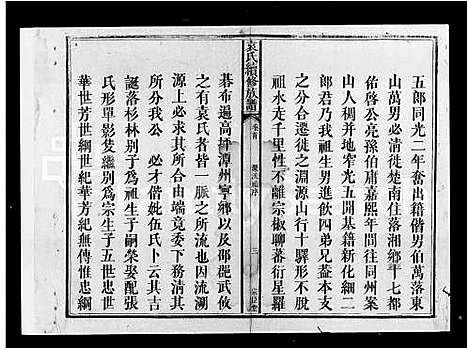 五郎同光二年奮出籍偕男伯萬落東
山萬男必清徙楚南住落湘鄉十七都
佑啓公亮孫伯庸嘉熙年間往同州案
山人稠并地窄光五開基籍新化細二
郎君乃我祖生男進飲四弟兄蓋本支
之分合遷徙之淵源山行十驛形不脫
祖水走千里性不離宗椒聊蕃衍星羅
袁氏續修族譜
卷首
三
碁布遍高坪潭州寧鄉以及邵邑武攸
之有袁氏者皆一脈之所流也因流溯
源上必求其所合由端竟委下務清其
所分我公 必才偕妣伍氏卜云其吉
誕落杉林別子為祖生子嗣榮娶配張
氏形單影笈繼別為宗生子五世忠世
華世芳綱世紀華芳紀無傳惟忠綱